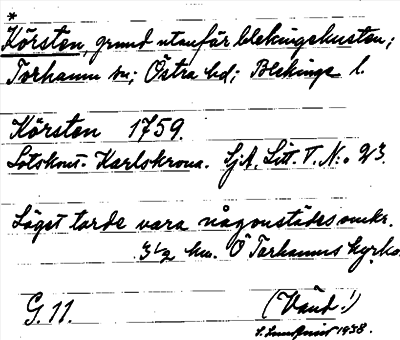 *
Körsten, grund utanför blekingekusten;
Torhamn sn; Östra hd; Blekinge l.
Körsten 1759.
Lotskont. Karlskrona. SjA. Litt. T. N:o 23.
Läget torde vara någonstädes omkr.
3½ km. O Torhamns kyrka.
G. 11. (Vänd!)
1938.